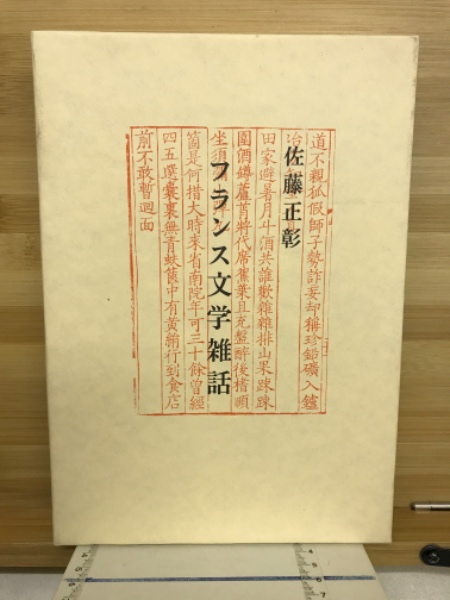 道不親狐假師子勢詐妄却稱珍鉛礦入鑪
冶
佐藤正彰
田家避暑月斗酒共誰歡雜雜排山果踈踈
圍酒罇蘆莦將代席蕉葉且充盤醉後榰頤
坐須
フランス文学雑話
箇是何措大時來省南院年可三十餘曾經
四五選囊裏無青蚨篋中有黄絹行到食店
前不敢暫迴面